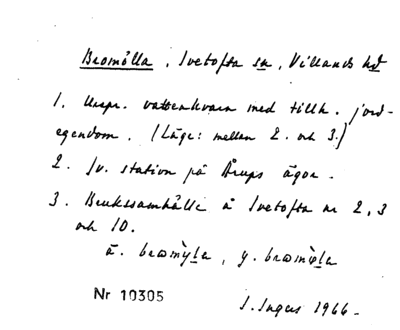 Bromölla, Ivetofta sn, Villands hd
1. Urspr. vattenkvarn med tillh. jord-
egendom. (Läge: mellan 2. och 3.)
2. Jv. station på Årups ägor.
3. Brukssamhälle å Ivetofta nr 2, 3
och 10.
ä. bromỳla, y. bromø̀la
Nr 10305
S. Ingers 1966.